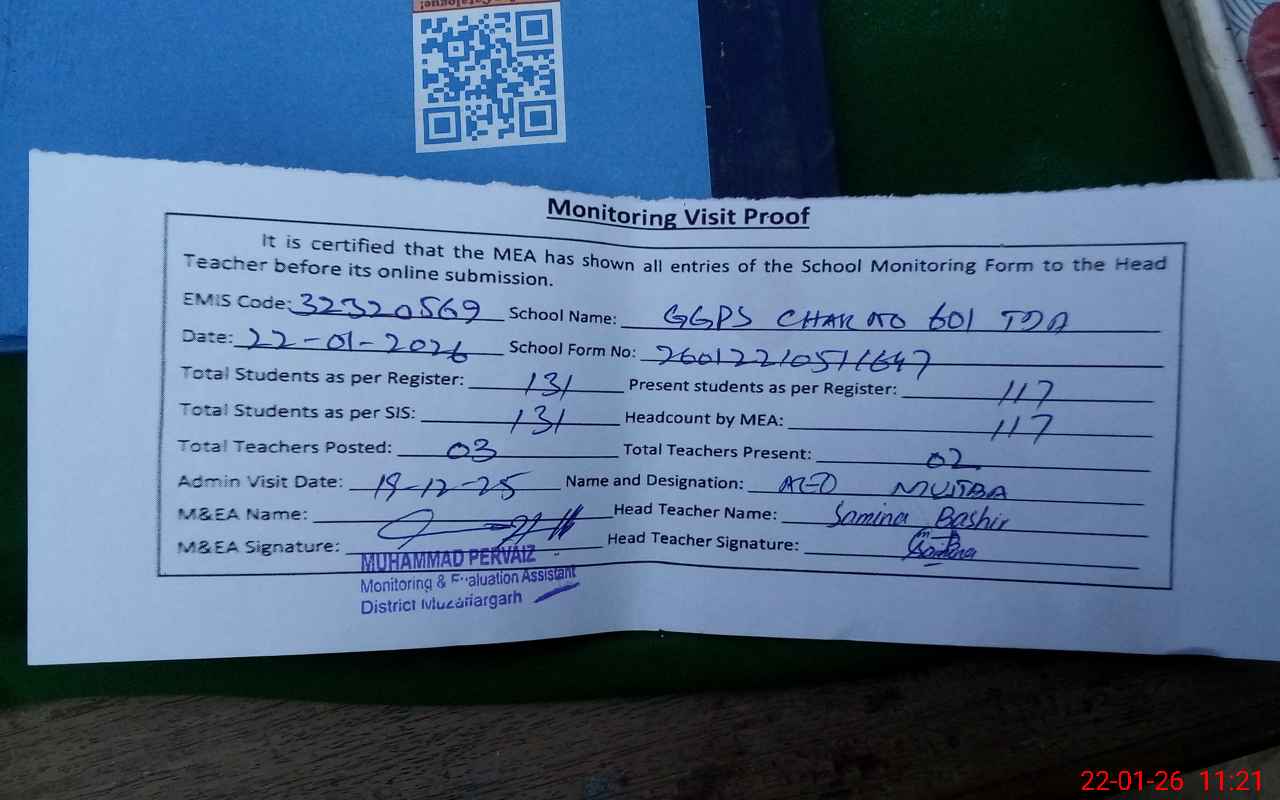 Catalogue!
Monitoring Visit Proof
It is certified that the MEA has shown all entries of the School Monitoring Form to the Head
Teacher before its online submission.
EMIS Code: 32320569 School Name: GGPS CHAK NO 601 TDA
Date: 22-01-2026 School Form No: 26012210511647
Total Students as per Register: 131 Present students as per Register: 117
Total Students as per SIS: 131 Headcount by MEA: 117
Total Teachers Posted: 03 Total Teachers Present: 02
Admin Visit Date: 19-12-25 Name and Designation: AEO MUJTBA
M&EA Name: Head Teacher Name: Samina Bashir
M&EA Signature: Head Teacher Signature: Samina
MUHAMMAD PERVAIZ
Monitoring & Evaluation Assistant
District Muzaffargarh
22-01-26 11:21